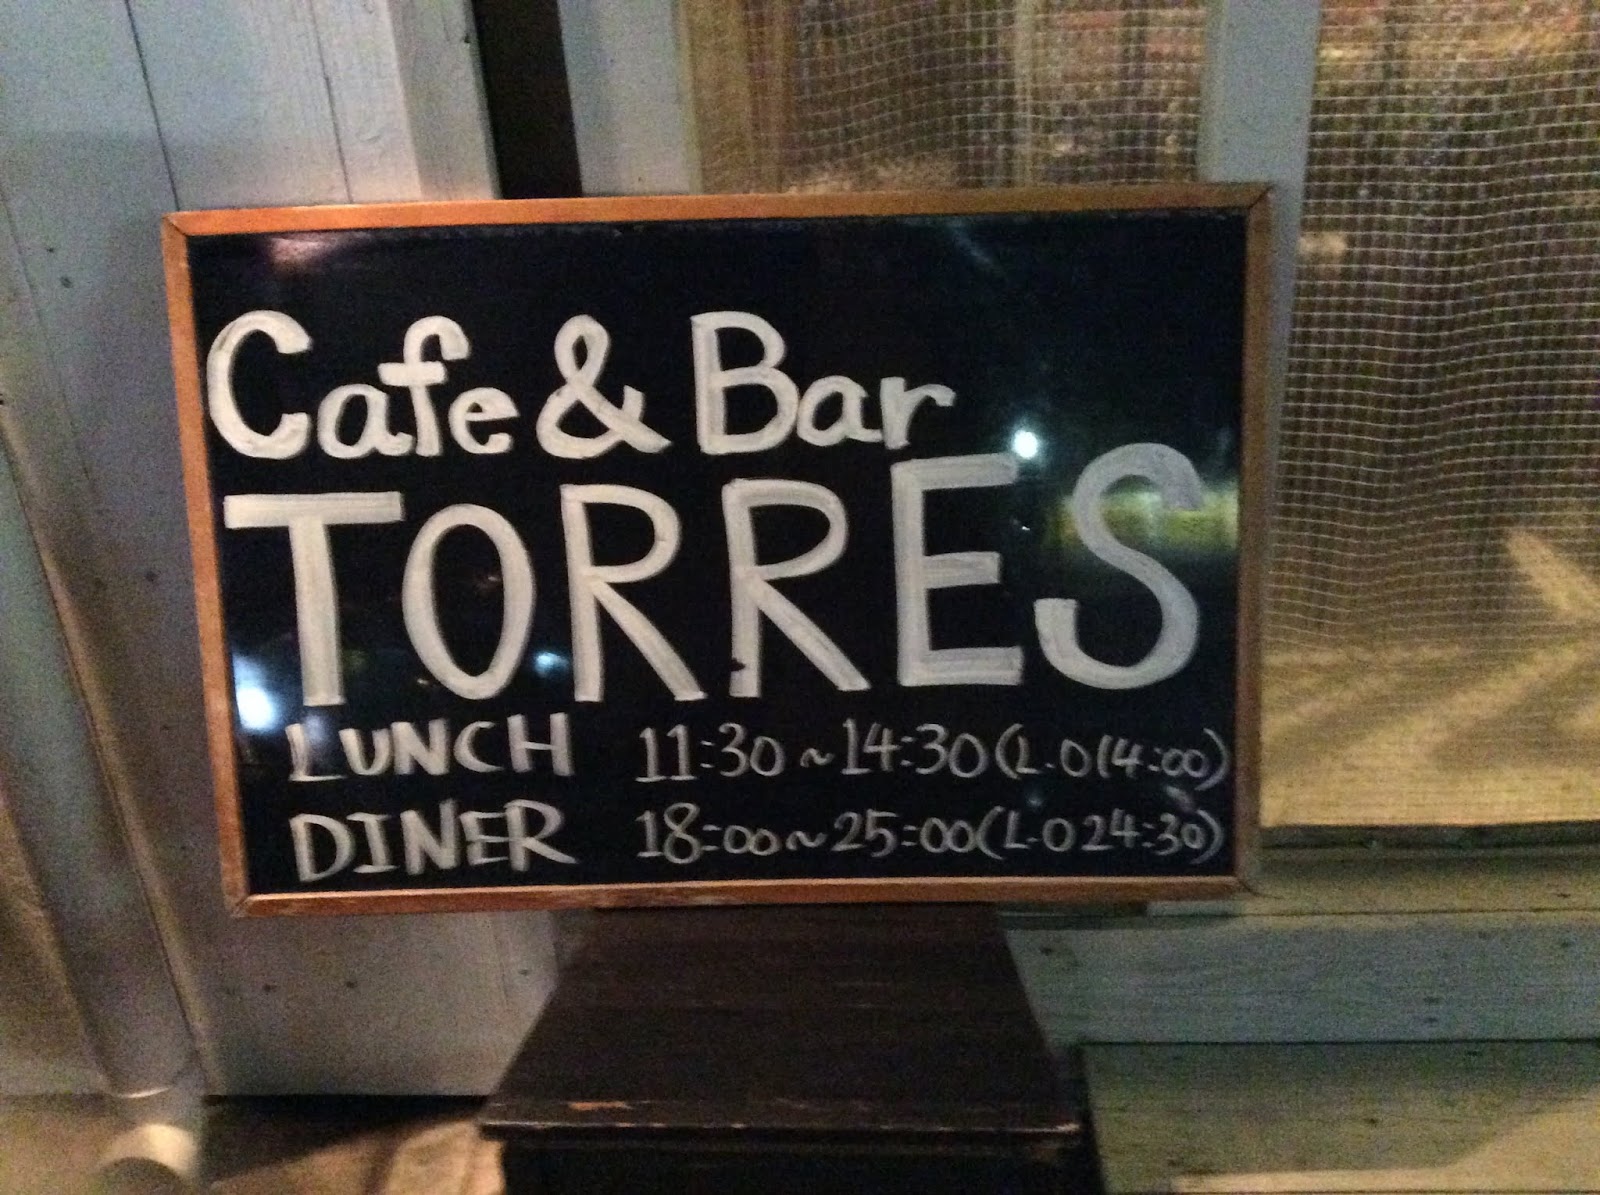 Cafe & Bar
TORRES
LUNCH 11:30~14:30(L.O14:00)
DINER 18:00~25:00(L.O24:30)